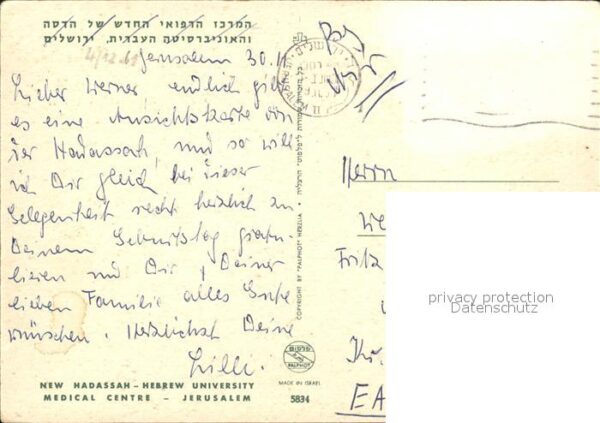 המרכז הרפואי החדש של הדסה
והאוניברסיטה העברית, ירושלים
4/12 61
Jerusalem 30.11
Lieber Werner endlich gibt
es eine Ansichtskarte von
der Hadassah, und so will
ich Dir gleich bei dieser
Gelegenheit recht herzlich zu
Deinem Geburtstag gratu-
lieren und Dir, Deiner
lieben Familie alles Gute
wünschen. Herzlichst Deine
Lilli.
NEW HADASSAH – HEBREW UNIVERSITY
MEDICAL CENTRE – JERUSALEM
COPYRIGHT BY "PALPHOT" HERZLIA
כל הזכויות שמורות ל"פלפוט" הרצליה
פלפוט
PALPHOT
MADE IN ISRAEL
5834
Herrn
We
Fritz
Kr.
EA
privacy protection
Datenschutz